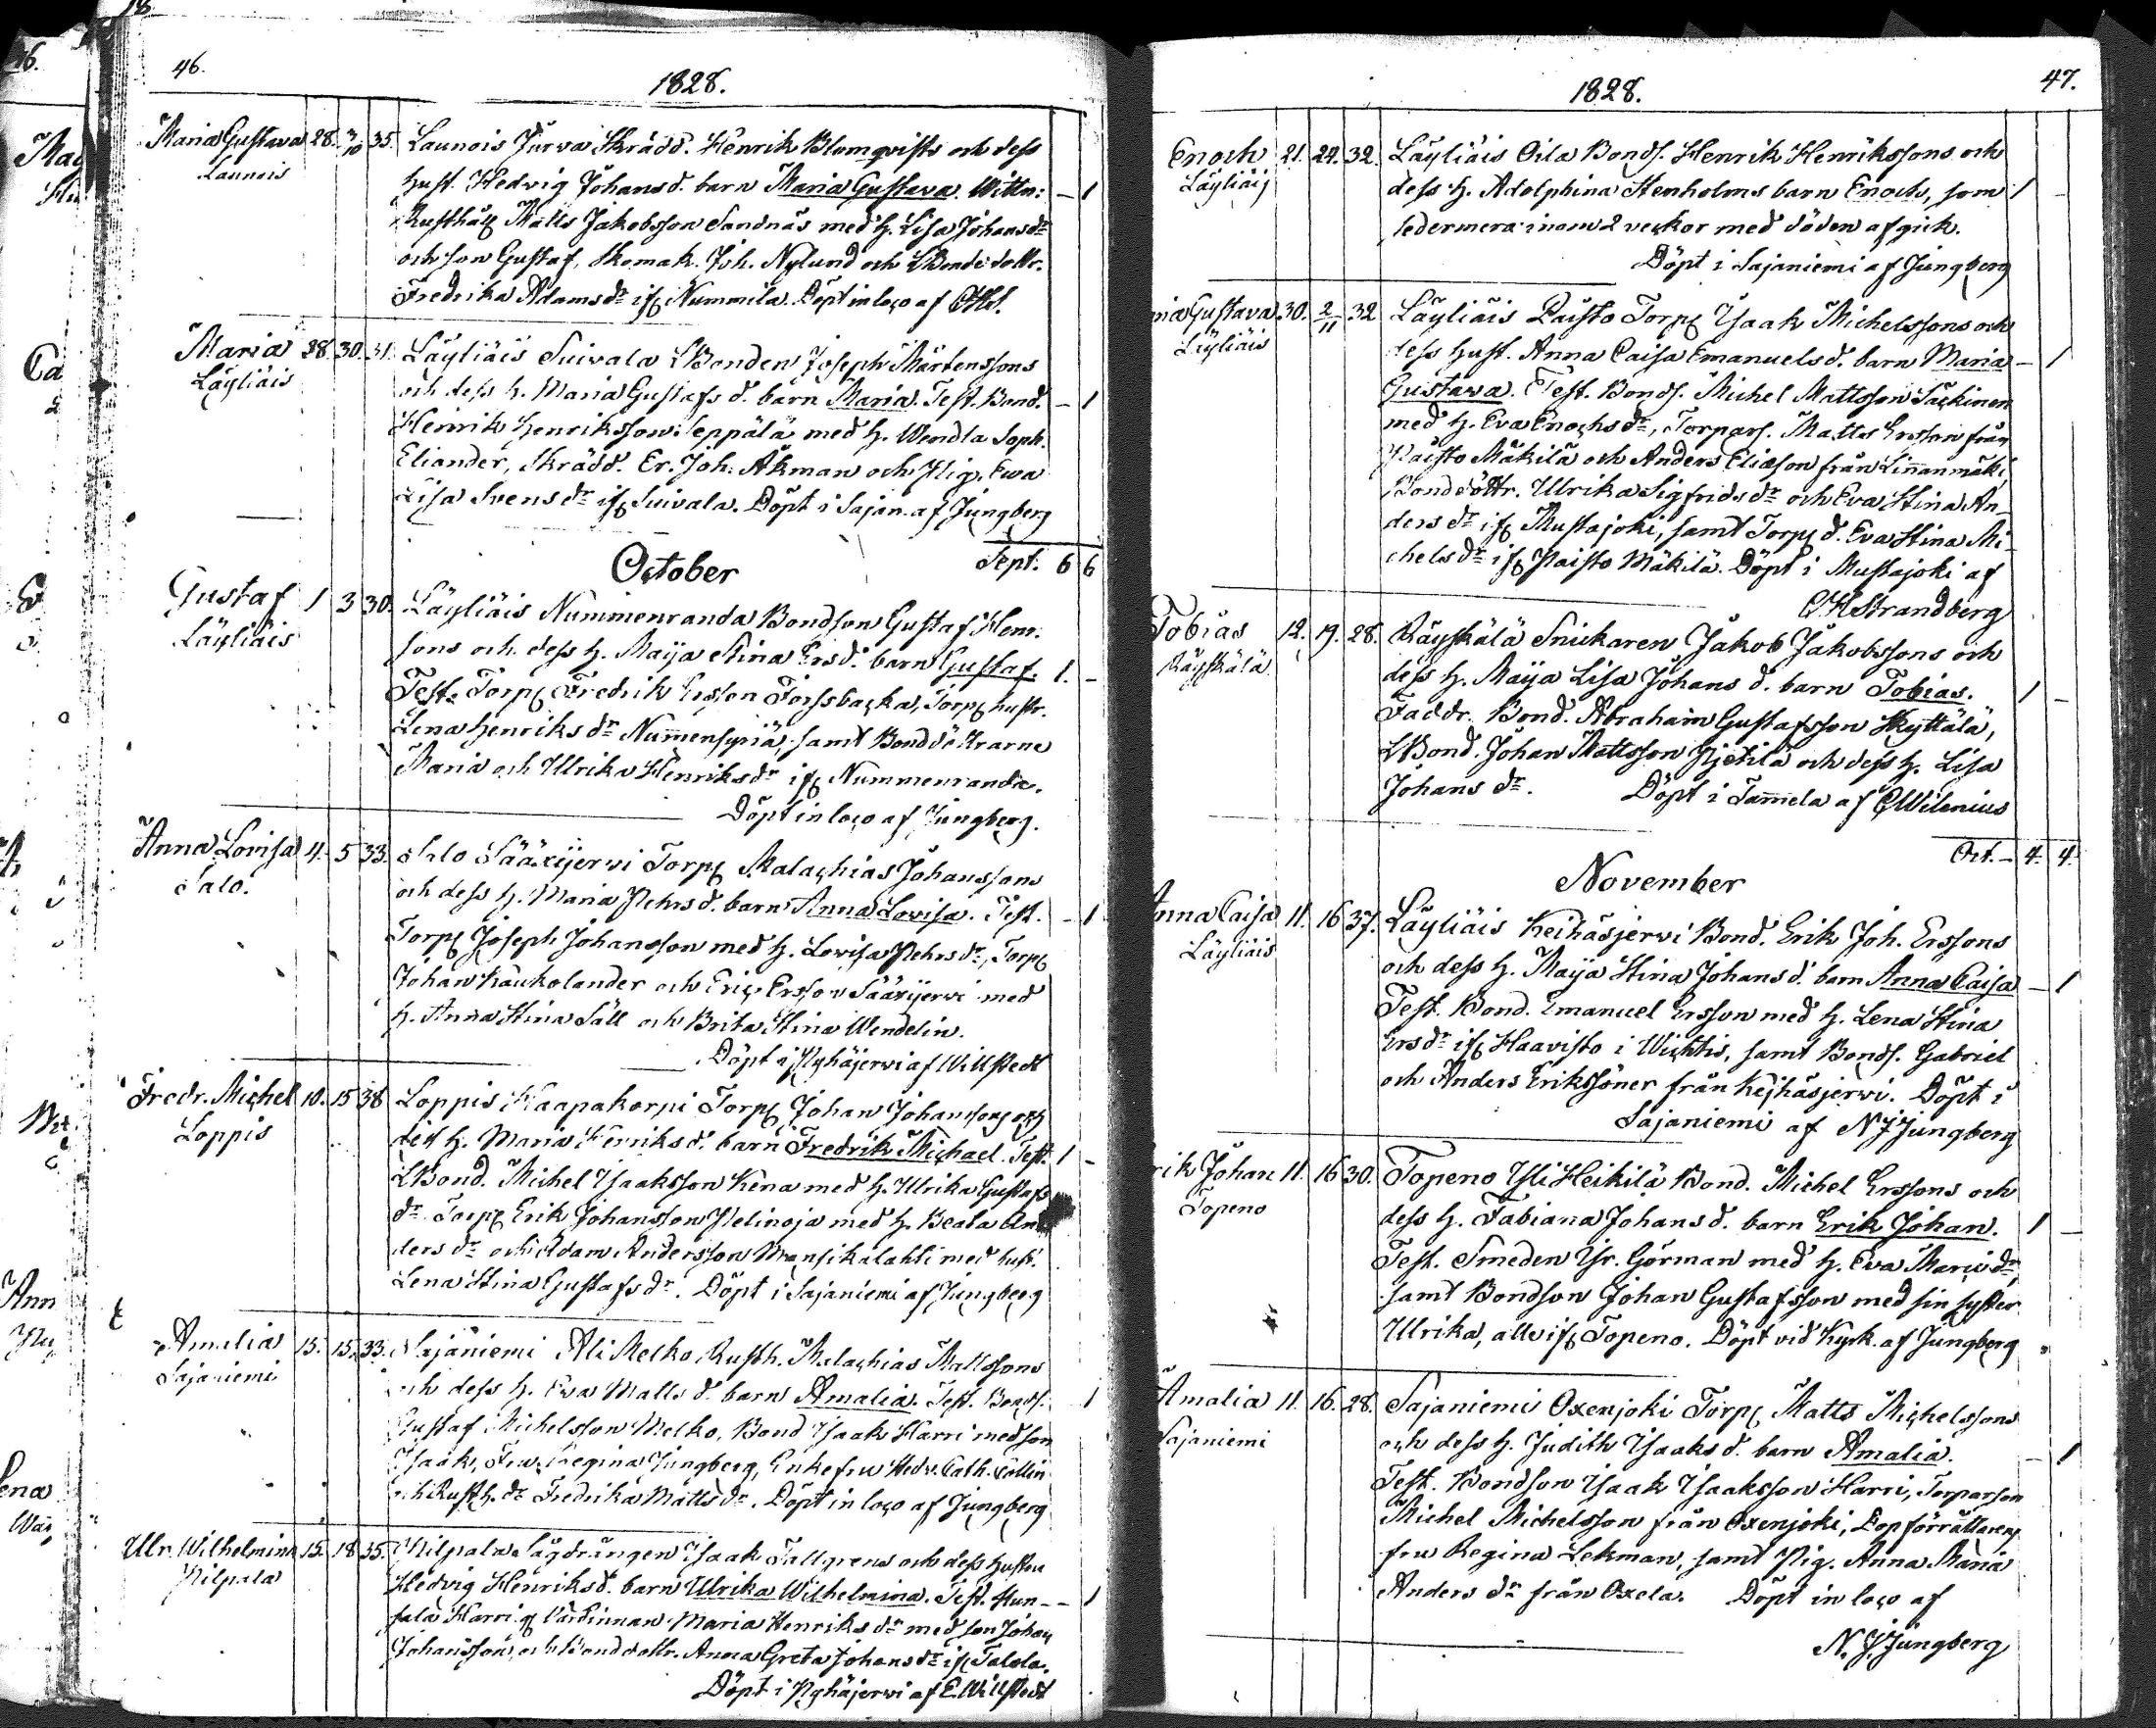 46.
1828.
Maria Gustava 28. 3/10 35. Launois Jurva Skrädd. Henrik Blomqvists och dess
Launois
hust. Hedvig Johansd. barn Maria Gustava. Wittn: – 1
Rusthåll Matts Jakobsson Sandnäs med h. Lisa Johansdr
och son Gustaf, Skomak. Joh. Nylund och LBondedottr.
Fredrika Adamsdr if Nummila. Döpt in loco af
Maria 28. 30. 31. Läyliäis Suivala LBonden Joseph Mårtenssons
Läyliäis
och dess h. Maria Gustafsd. barn Maria. Test. Bond. – 1
Henrik Henriksson Seppälä med h. Wendla Soph.
Eliander, Skrädd. Er. Joh. Åkman och Pig. Ewa
Lisa Svensdr if Suivala. Döpt i Sajan. af Jungberg
Sept. 6 6
October
Gustaf 1 3 30. Läyliäis Nummenranda Bondson Gustaf Henr.
Läyliäis
sons och dess h. Maija Stina Ersd. barn Gustaf. 1. –
Test. Torp Fredrik Ersson Forssbacka, Torp hustr.
Lena Henriksdr Nummensyriä, samt Bonddöttrarne
Maria och Ulrika Henriksdr if Nummenranda.
Döpt in loco af Jungberg.
Anna Lovisa 4. 5 33. Salo Sääxijerwi Torp Malachias Johanssons
Salo.
och dess h. Maria Pehrsd. barn Anna Lovisa. Test. – 1
Torp Joseph Johansson med h. Lovisa Pehrsdr, Torp
Johan Kaukolander och Eric Ersson Sääxijerwi med
h. Anna Stina Säll och Brita Stina Wendelin.
Döpt i Pyhäjerwi af Willstedt
Fredr. Michel 10. 15 38 Loppis Haapakorpi Torp Johan Johanssons och
Loppis
dess h. Maria Henriksd. barn Fredrik Michael. Test. 1 –
LBond. Michel Isaaksson Kena med h. Ulrika Gustafs
dr Torp Erik Johansson Pelinoja med h. Beata An
dersdr och Adam Andersson Mansikalahti med hust.
Lena Stina Gustafsdr. Döpt i Sajaniemi af Jungberg
Amalia 15. 15. 33. Sajaniemi Ali Melko, Rusth. Malachias Mattssons
Sajaniemi
och dess h. Eva Mattsd. barn Amalia. Test. Bonds. 1
Gustaf Michelsson Melko, Bond Isaak Harri med son
Isaak, Fru Regina Jungberg, Enkefru Hedv. Cath. Collin
och Rusth. dr Fredrika Mattsdr. Döpt in loco af Jungberg
Ulr. Wilhelmina 15. 18 35. Pilpala Sågdrängen Isaak Tallgrens och dess hustru
Pilpala
Hedvig Henriksd. barn Ulrika Wilhelmina. Test. – 1
Harri Värdinnan Maria Henriksdr med son Johan
Johansson, och Bonddottr. Anna Greta Johansdr if Talola.
Döpt i Pyhäjerwi af E. Willstedt
1828.
47.
Enoch 21. 24. 32. Läyliäis Oila Bonds. Henrik Henrikssons och
Läyliäis
dess h. Adolphina Stenholms barn Enoch, som 1 –
sedermera inom 2 veckor med döden afgick.
Döpt i Sajaniemi af Jungberg
Gustava 30. 2/11 32 Läyliäis Paisto Torp Isaak Michelssons och
Läyliäis
dess hust. Anna Caisa Emanuelsd. barn Maria – 1
Gustava. Test. Bonds. Michel Mattsson Säckinen
med h. Eva Enochsdr, Torpars. Matts Ersson från
Paisto Mäkilä och Anders Eliasson från Linnanmäki,
Bonddöttr. Ulrika Sigfridsdr och Eva Stina An
dersdr if Mustajoki, samt Torp d. Eva Stina Mi
chelsdr if Paisto Mäkilä. Döpt i Mustajoki af
CHStrandberg
Tobias 12. 19. 28. Räyskälä Snickaren Jakob Jakobssons och
Räyskälä
dess h. Maija Lisa Johansd. barn Tobias. 1 –
Faddr. Bond. Abraham Gustafsson Skyttälä,
LBond. Johan Mattsson Pietilä och dess h. Lisa
Johansdr. Döpt i Tammela af CWilenius
Oct. – 4. 4.
November
Anna Caisa 11. 16 37. Läyliäis Keihäsjerwi Bond. Erik Joh. Erssons
Läyliäis
och dess h. Maija Stina Johansd. barn Anna Caisa – 1
Test. Bond. Emanuel Ersson med h. Lena Stina
Ersdr if Haavisto i Wichtis, samt Bonds. Gabriel
och Anders Erikssöner från Keihäsjerwi. Döpt i
Sajaniemi af N J Jungberg
rik Johan 11. 16 30. Topeno Yli Heikilä Bond. Michel Erssons och
Topeno
dess h. Fabiana Johansd. barn Erik Johan. 1 –
Test. Smeden Isr. Görman med h. Eva Maria dr,
samt Bondson Johan Gustafsson med sin syster
Ulrika, alla if Topeno. Döpt vid Kyrk. af Jungberg
Amalia 11. 16. 28. Sajaniemi Oxenjoki Torp Matts Michelssons
Sajaniemi
och dess h. Judith Isaaksd. barn Amalia. – 1
Test. Bondson Isaak Isaaksson Harri, Torparson
Michel Michelsson från Oxenjoki, Dopförrättarens
fru Regina Lekman, samt Pig. Anna Maria
Andersdr från Oxela. Döpt in loco af
N. J. Jungberg